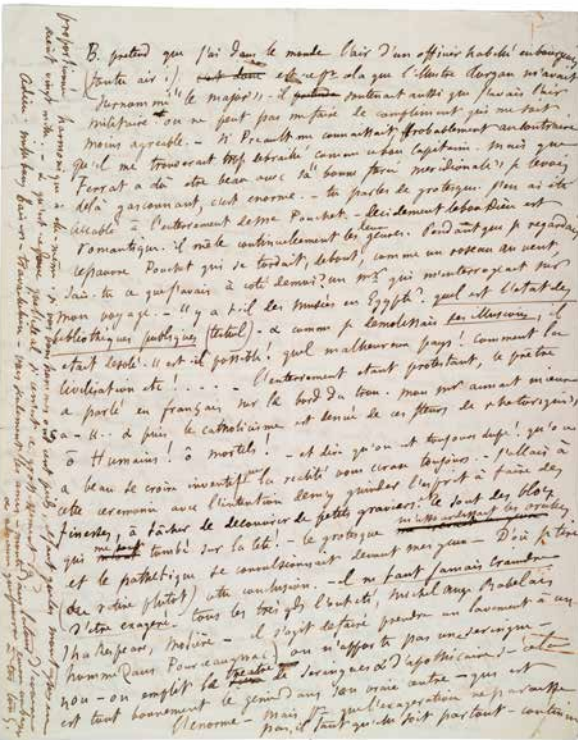 B. prétend que j'ai dans le monde l'air d'un officier habillé en bourgeois
(foutre air !). est-ce pr cela que l'illustre Turgan m'avait
surnommé "le major" - il soutenait aussi que j'avais l'air
militaire. on ne peut pas me faire de compliment qui me soit
moins agréable. - si Préault me connaissait probablement au contraire
qu'il me trouverait trop débraillé comme ce bon capitaine. mais que
Ferrat a dû être beau avec sa "bonne furia méridionale" je le vois
de là gasconnant, c'est énorme. - tu parles de grotesque. j'en ai été
accablé à l'enterrement de Mme Pouchet. - Décidément le bon Dieu est
romantique. il mêle continuellement les genres. Pendant que je regardais
ce pauvre Pouchet qui se tordait, debout, comme un roseau au vent,
sais-tu ce que j'avais à côté de moi ? un mr qui m'interrogeait sur
mon voyage. - "Y a-t-il des musées en Égypte ? quel est l'état des
bibliothèques publiques" (textuel) - & comme je démolissais ses illusions, il
était désolé. "est-il possible ! quel malheureux pays ! comment la
civilisation etc ! . . . . - l'enterrement étant protestant, le prêtre
a parlé en français sur le bord du trou. mon mr aimait mieux
ça - "& puis le catholicisme est dénué de ces fleurs de rhétorique",
ô Humains ! ô mortels ! - et dire qu'on est toujours dupe ! qu'on
a beau se croire inventif, que la réalité vous écrase toujours. - j'allais à
cette cérémonie avec l'intention de m'y guinder l'esprit à faire des
finesses, à tâcher de découvrir de petits graviers. ce sont des blocs
qui me sont tombés sur la tête ! - le grotesque m'assourdissait les oreilles
et le pathétique se convulsionnait devant mes yeux - D'où je tire
(ou retire plutôt) cette conclusion. - il ne faut jamais craindre
d'être exagéré. tous les très gds l'ont été, Michel Ange, Rabelais
Shakespear, Molière - il s'agit de faire prendre un lavement à un
homme (dans Pourceaugnac) on n'apporte pas une seringue -
non - on emplit le théâtre de seringues & d'apothicaires - cela
est tout bonnement le génie dans son vrai centre - qui est
l'énorme - mais pr que l'exagération ne paraisse
pas, il faut qu'elle soit partout - continue
proportionnée, harmonique à elle-même. si vos bonshommes ont cent pieds, il faut que les montagnes en
aient vingt mille. - & qu'est-ce donc que l'idéal si ce n'est ce grossissement-là
Adieu, mille bons baisers - travaille bien - vois seulement les amis - monte dans la tour d'ivoire
& advienne que pourra. encore un baiser
à toi ton G